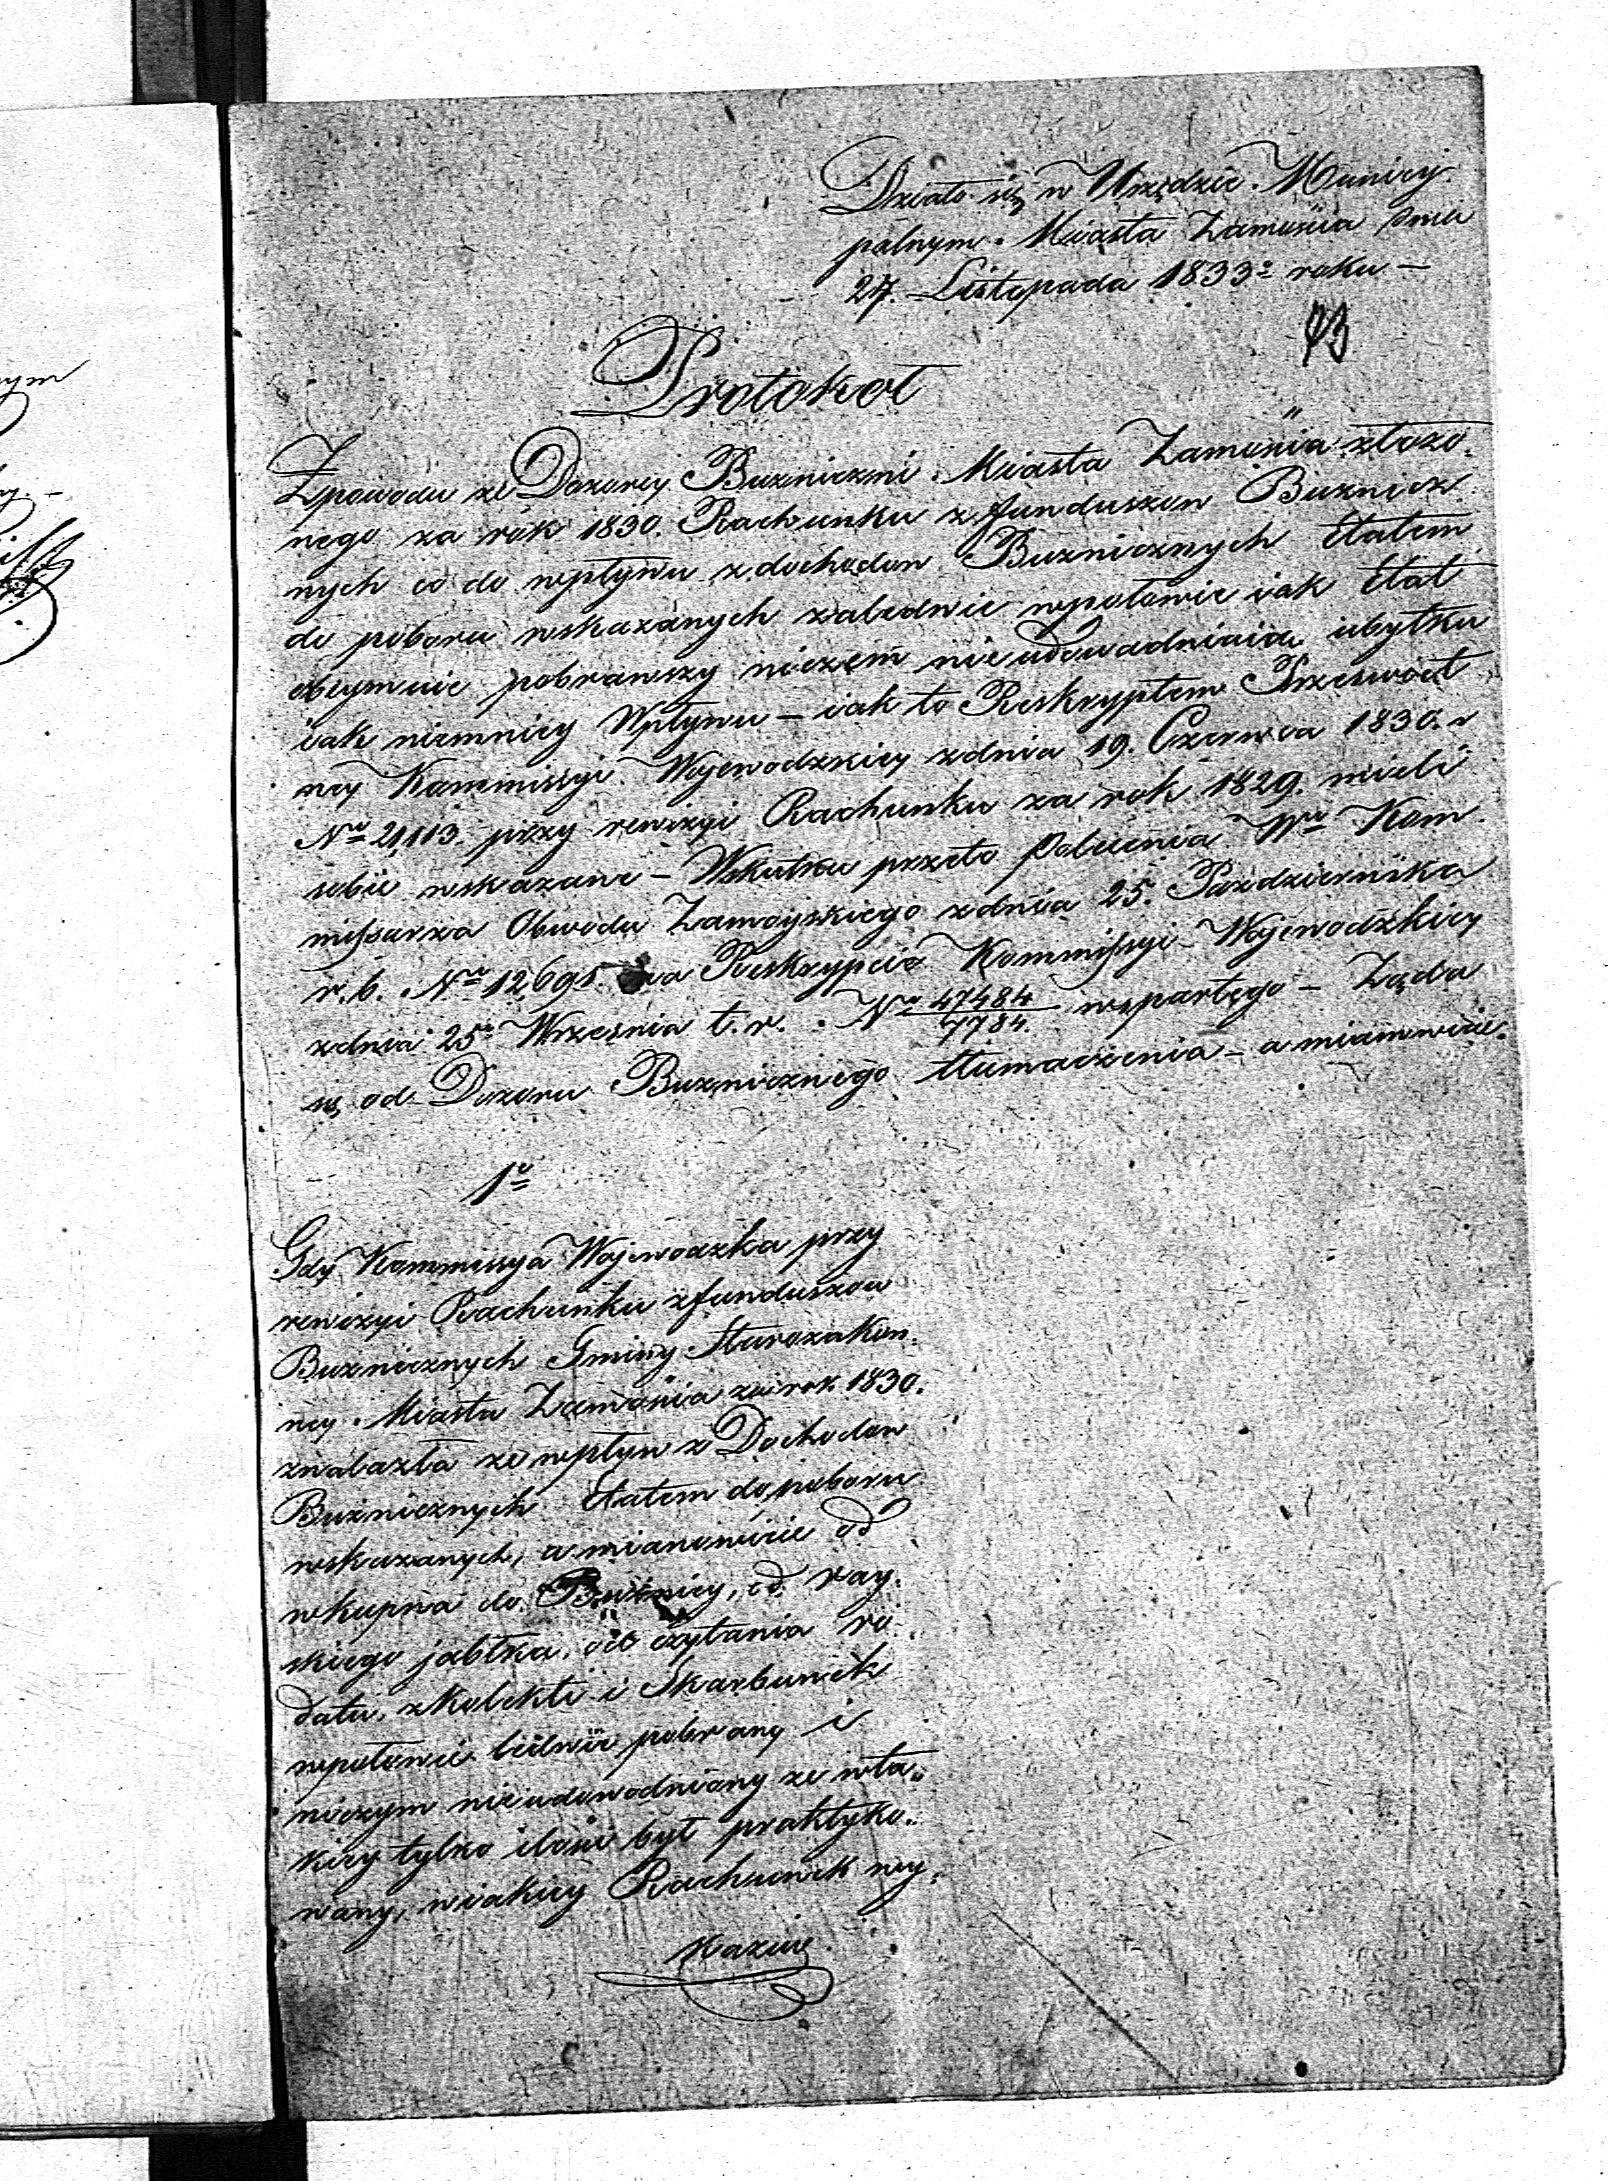 Działo się w Urzędzie Municy
palnym Miasta Zamościa dnia
27. Listopada 1833º roku —
93
Protokoł
Zpowodu ze Dozorcy Buzniczni Miasta Zamościa złozo-
nego za rok 1830. Rachunku z funduszow Buznicz
nych co do wpływu z dochodow Buznicznych Etatem
do poboru wskazanych zaledwie wpołowie iak Etat
obeymuie pobrawszy niczem nieudowadniaia ubytku
iak niemniey Wpływu — iak to Reskryptem Przeswiet
ney Kommissyi Wojewodzkiey zdnia 19. Czerwca 1830. r
Nº 21,113. przy rewizyi Rachunku za rok 1829. mieli
sobie wskazane — Wskutku przeto Polecenia Wº Kom
missarza Obwodu Zamoyskiego zdnia 25. Pazdziernika
r. b. Nº 12,695. na Reskrypcie Kommissyi Wojewodzkiey
zdnia 25º Wrzesnia t. r. Nº 47484/7784 wspartego — Ząda
się od Dozoru Buznicznego tłumaczenia — a mianowicie.
1º
Gdy Kommissya Wojewodzka przy
rewizyi Rachunku zfunduszow
Buznicznych Gminy Starozakon-
ney Miasta Zamościa za rok 1830.
znalazła ze wpływ z Dochodow
Buznicznych Etatem do poboru
wskazanych, a mianowicie od
wkupna do Buznicy, od ray-
skiego jabłka, od czytania ro-
dału, zkolekti i Skarbunek
wpołowie ledwie pobrany i
niczym nieudowodniony ze wta-
kiey tylko ilości był praktyko-
wany, wiakiey Rachunek wy-
kazuie